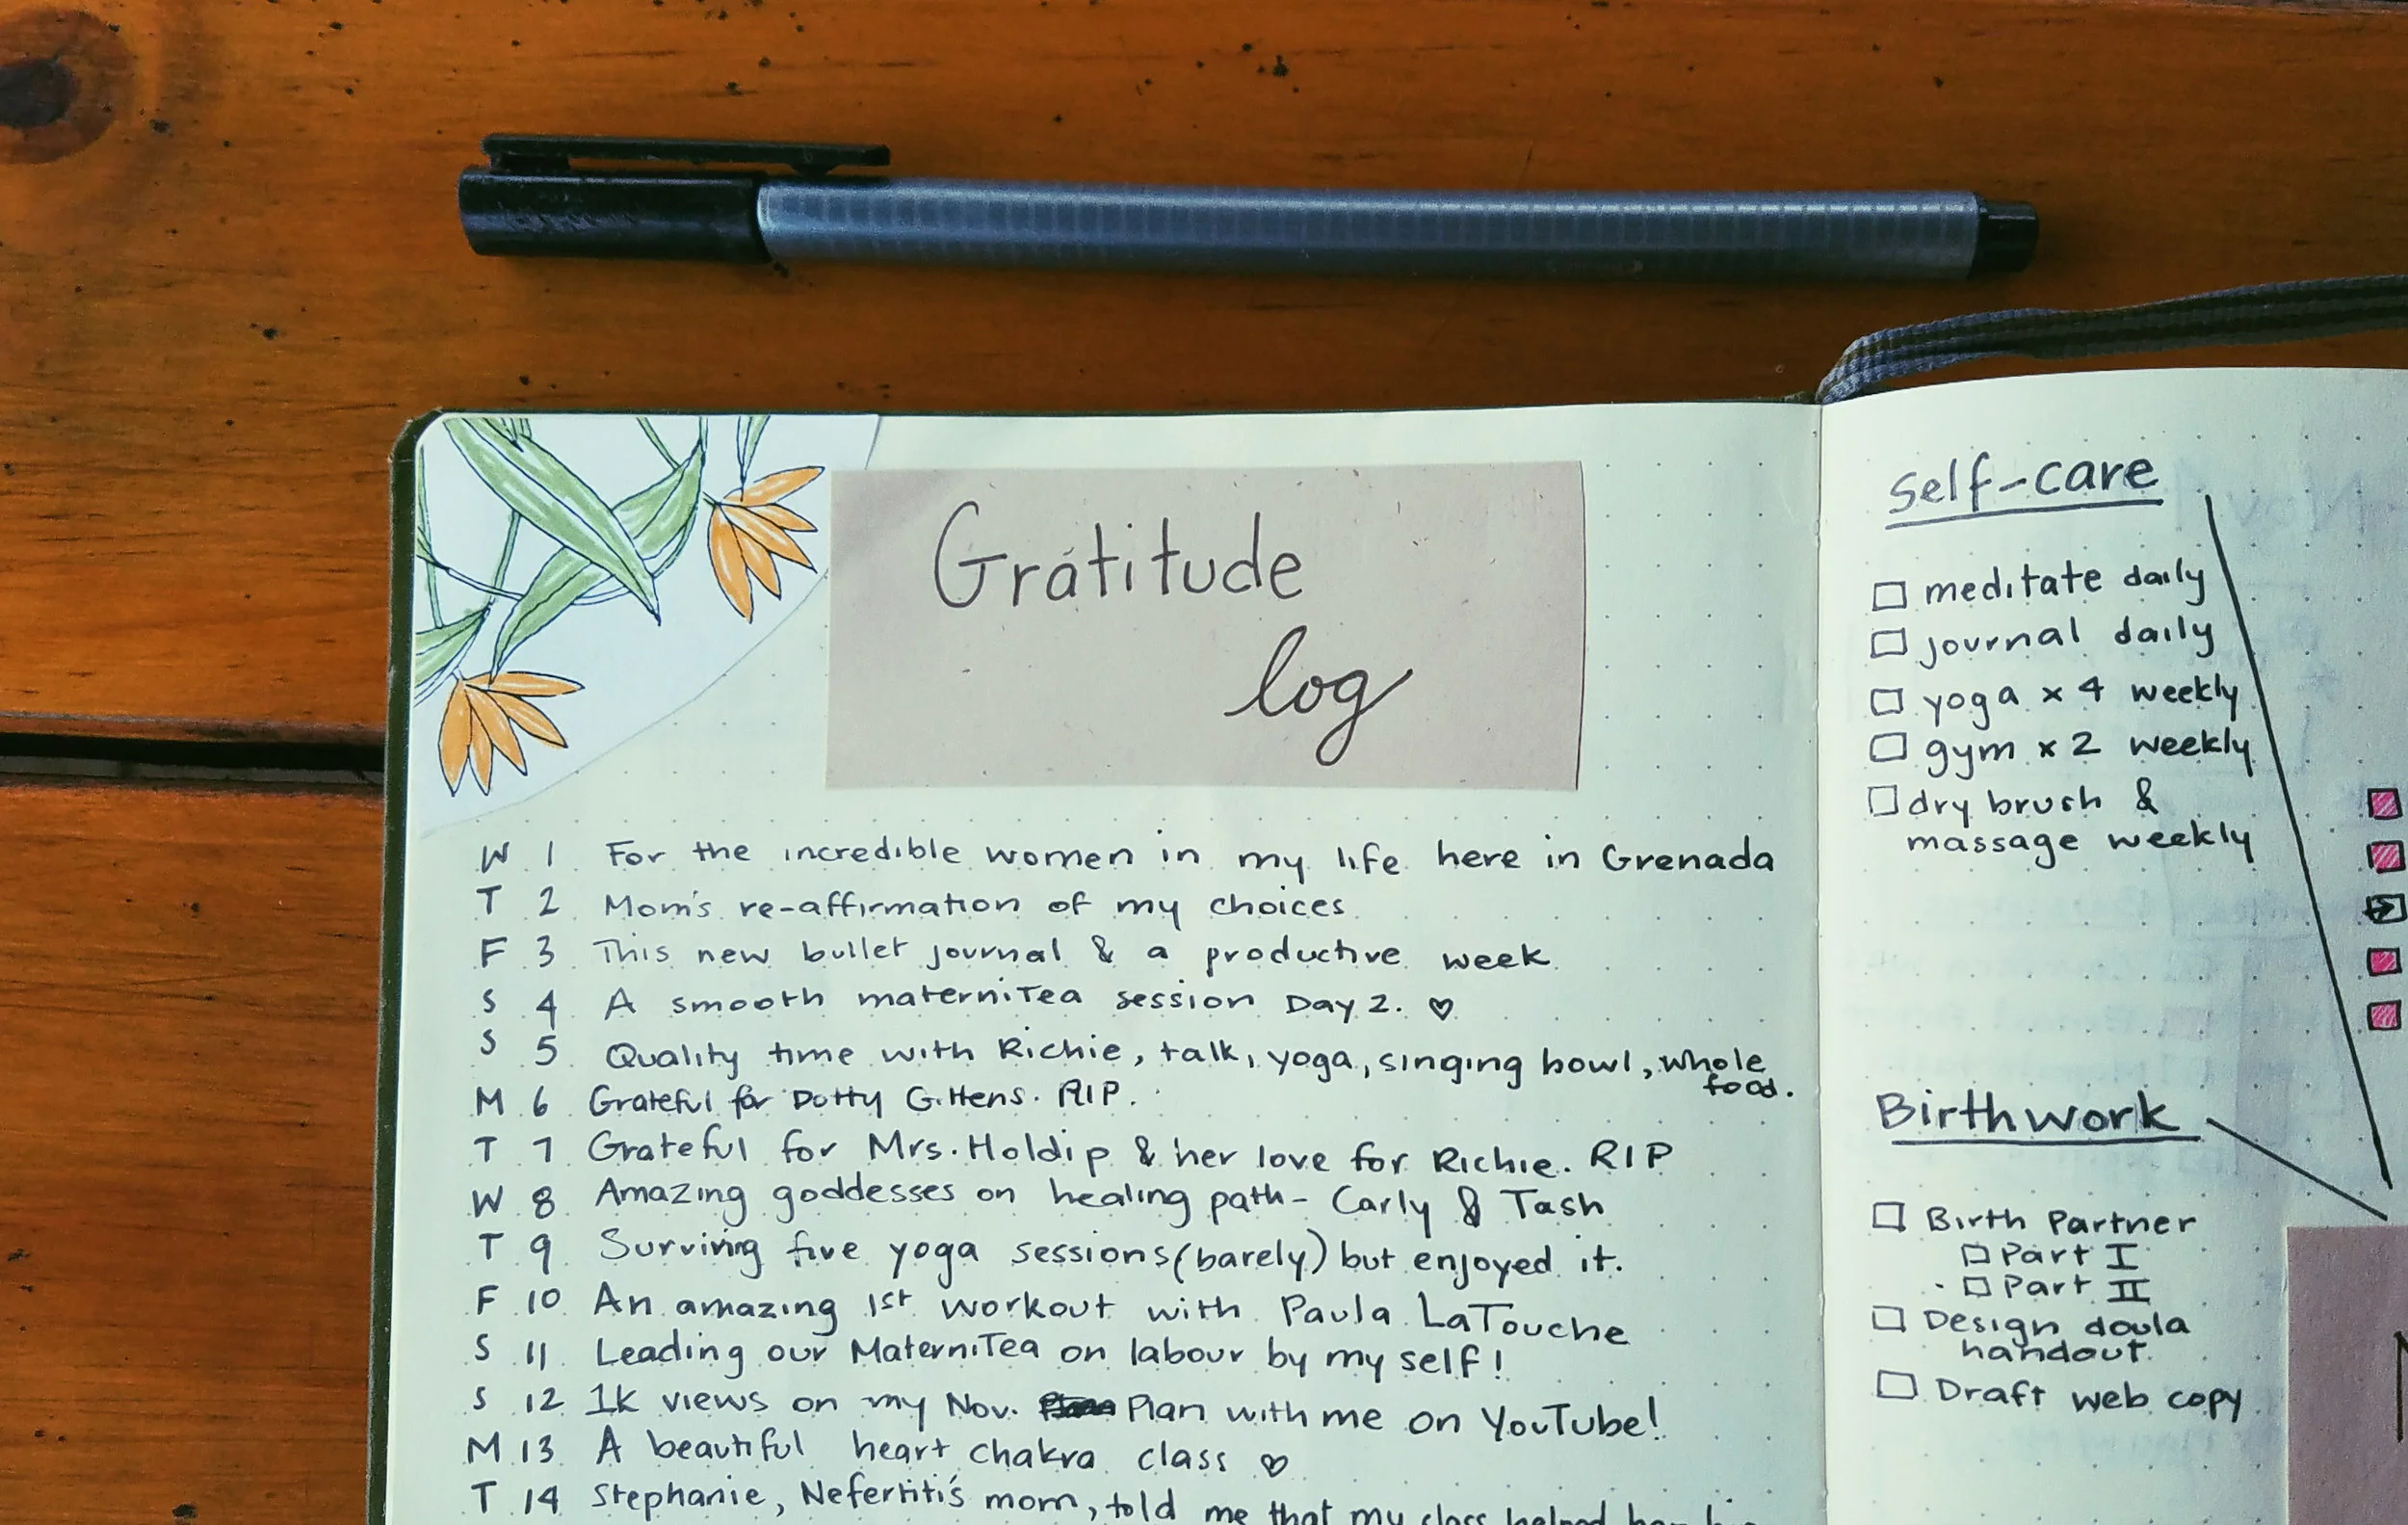 Gratitude
log
W 1 For the incredible women in my life here in Grenada
T 2 Mom's re-affirmation of my choices
F 3 This new bullet journal & a productive week
S 4 A smooth materniTea session Day 2. ♡
S 5 Quality time with Richie, talk, yoga, singing bowl, whole
food.
M 6 Grateful for Dotty Gittens. RIP.
T 7 Grateful for Mrs. Holdip & her love for Richie. RIP
W 8 Amazing goddesses on healing path - Carly & Tash
T 9 Surviving five yoga sessions (barely) but enjoyed it.
F 10 An amazing 1st workout with Paula LaTouche
S 11 Leading our MaterniTea on labour by my self!
S 12 1k views on my Nov. Plan with me on YouTube!
M 13 A beautiful heart chakra class ♡
T 14 Stephanie, Nefertiti's mom, told me that my class helped her
Self-care
meditate daily
journal daily
yoga x 4 weekly
gym x 2 weekly
dry brush &
massage weekly
Birthwork
Birth Partner
Part I
Part II
Design doula
handout
Draft web copy